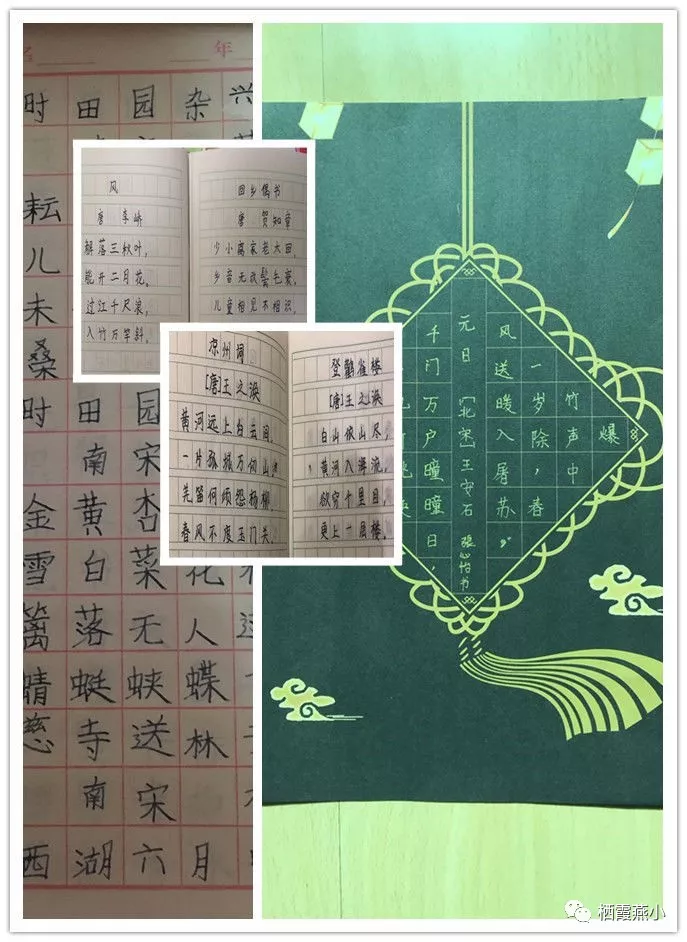 名 年
时田园杂兴
耘
儿
未
桑
时田园
南宋
金黄杏
雪白菜花
篱落无人
蜻蜓蛱蝶
慈寺送林
南宋
西湖六月
风
唐 李峤
解落三秋叶，
能开二月花。
过江千尺浪，
入竹万竿斜。
回乡偶书
唐 贺知章
少小离家老大回，
乡音无改鬓毛衰，
儿童相见不相识，
凉州词
[唐]王之涣
黄河远上白云间，
一片孤城万仞山，
羌笛何须怨杨柳，
春风不度玉门关。
登鹳雀楼
[唐]王之涣
白日依山尽，
黄河入海流，
欲穷千里目，
更上一层楼。
爆
竹声中
一岁除，春
风送暖入屠苏。
元日 [北宋]王安石 張心怡书
千门万户曈曈日，
栖霞燕小